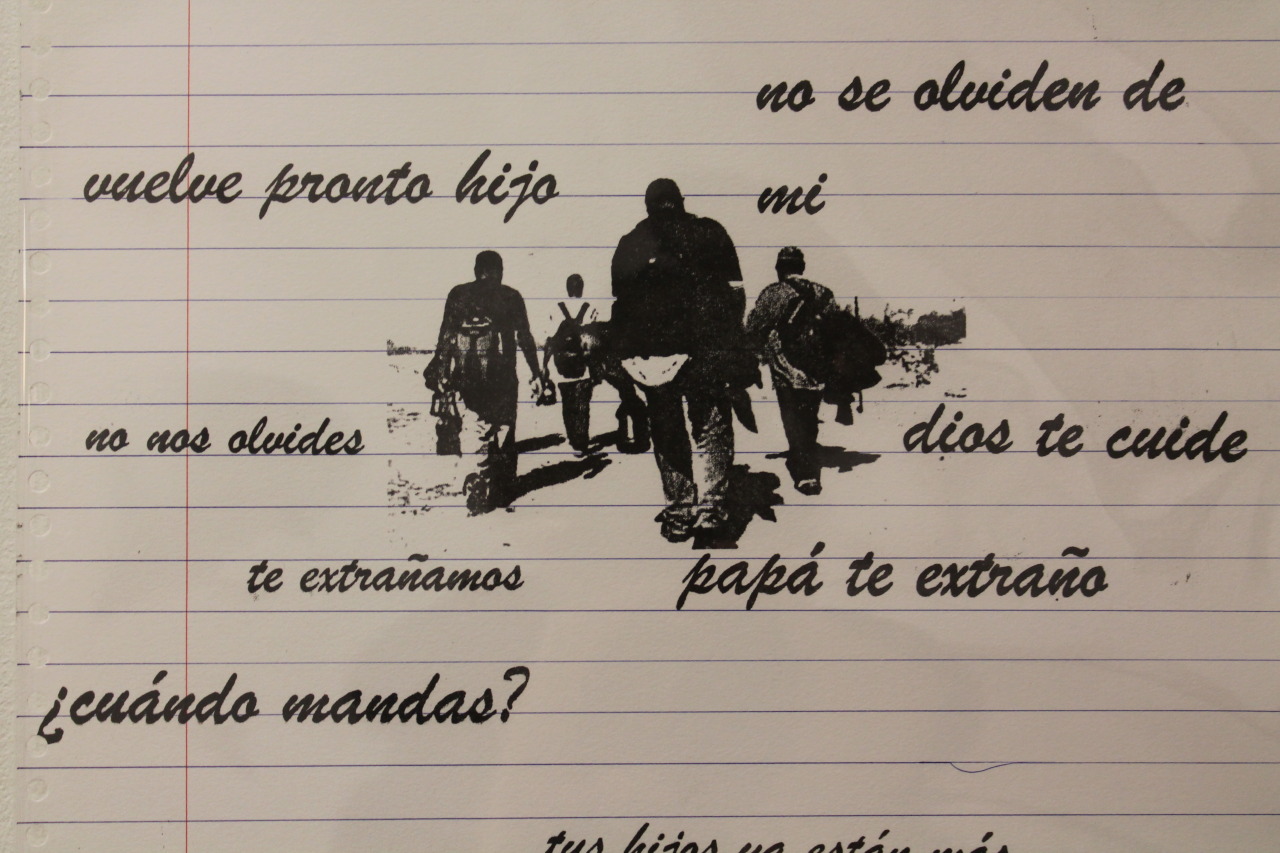 no se olviden de
mi
vuelve pronto hijo
no nos olvides
dios te cuide
te extrañamos
papá te extraño
¿cuándo mandas?
tus hijos ya están más